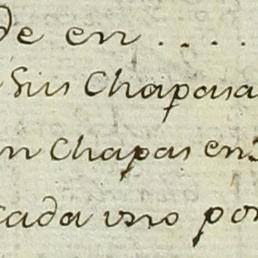 de en . . . .
Sus Chapasa
n Chapas en
cada uno por